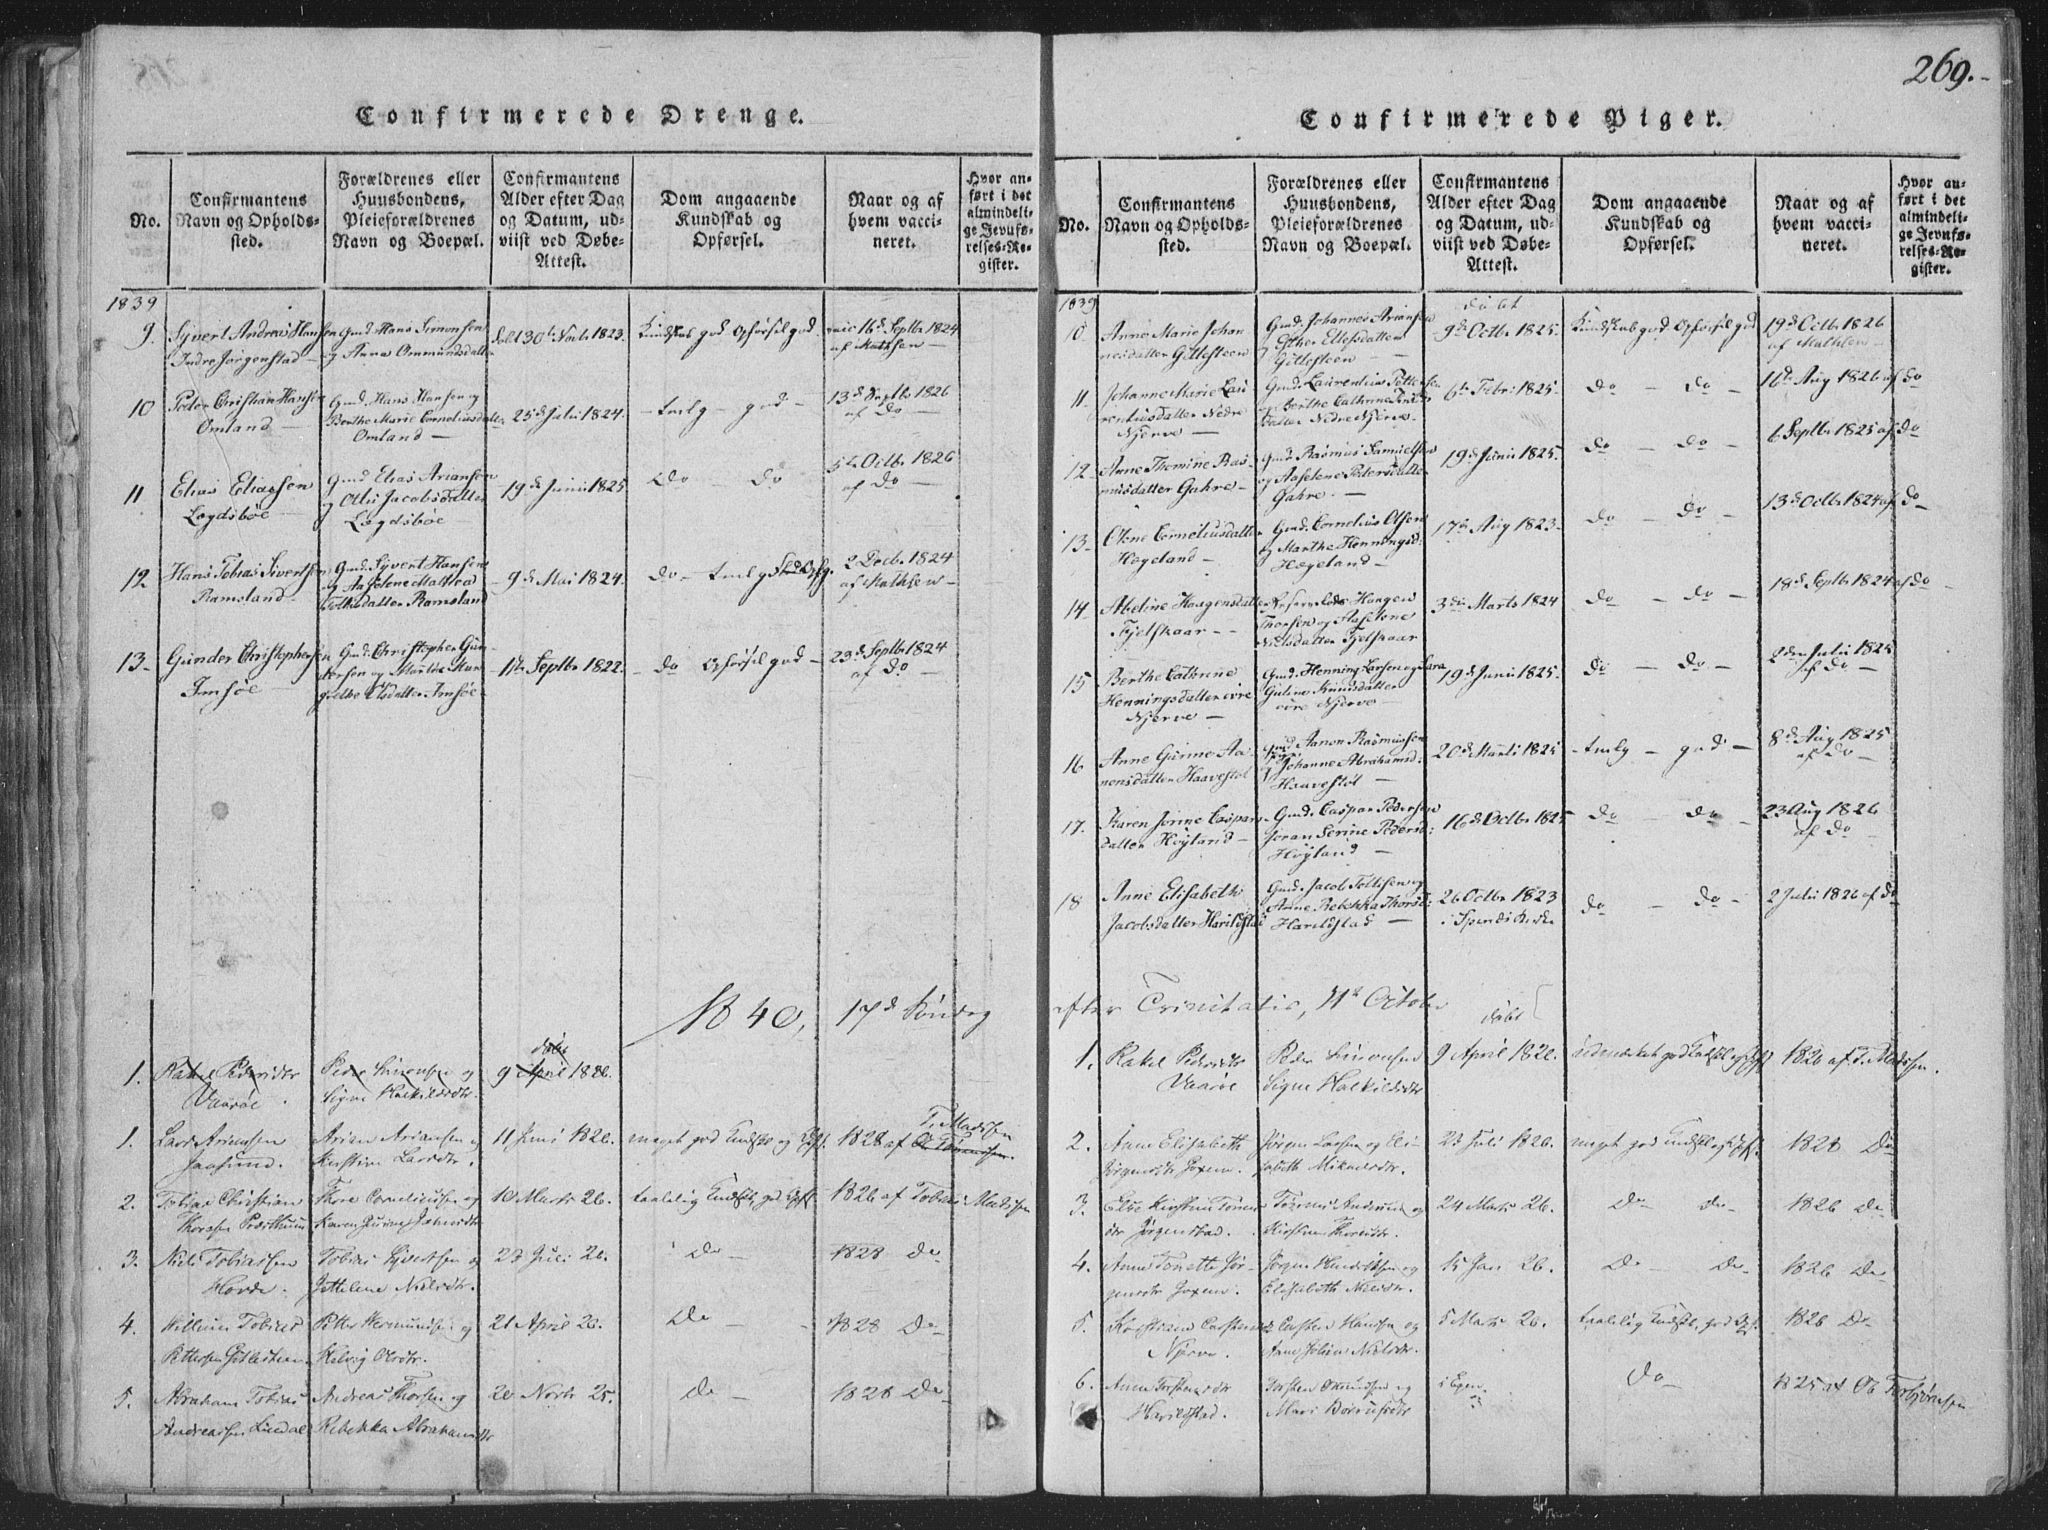 269.
Confirmerede Drenge.
No.
Confirmantens
Navn og Opholds-
sted.
Forældrenes eller
Huusbondens,
Pleieforældrenes
Navn og Boepæl.
Confirmantens
Alder efter Dag
og Datum, ud-
viist ved Døbe-
Attest.
Dom angaaende
Kundskab og
Opførsel.
Naar og af
hvem vacci-
neret.
Hvor an-
ført i det
almindeli-
ge Jevnfø-
relses-Re-
gister.
1839
9. Syvert Andreas Hansen
Indre Jørgenstad —
Gmd Hans Simonsen
og Anna Ommundsdatter
30te Novb. 1823.
Kundskab god Opførsel god
16d Septb 1824
af Mathsen —
10 Peder Christian Hansen
Omland —
Gmd Hans Hansen og
Berthe Marie Corneliusdatter
Omland —
25d Julii 1824.
— tmlg — god —
13d Septb 1826
af Do —
11 Elias Eliassen
Lægdsbøe —
Gmd Elias Ariansen
og Jacobsdatter
Lægdsbøe —
19d Junii 1825
Do — Do
5te Octb. 1826
af Do —
12 Hans Tobias Sivertsen
Ramsland —
Gmd. Syvert Hansen
og Aaselene Malena
Tollisdatter Ramsland
9d Mai 1824.
Do — tmlg
2 Decb. 1824
af Mathsen —
13 — Gunder Christophersen
Imsøe —
Gmd. Christopher Gun-
dersen og Martha Mar-
grethe Olsdatter Imsøe —
1te Septb. 1822.
— Do Opførsel god —
23d Septb 1824
af Do —
No 40, 17d Søndag
1. Rakel Pedersdtr
Vaarøe.
Peder Simonsen og
Signe Halkildsdtr.
døbt
9 April 1826.
1. Lars Ariansen
Jaasund.
Arian Ariansen og
Kirstine Larsdtr.
11 Juni 1826.
meget god Kundsk og Opfl.
1828 af T. Madssen
2. Tobias Christian
Thorsen Præsthuus
Thore Corneliussen og
Karen Gurine
10 Marts 26.
taalelig Kundsk, god Opfl.
1826 af Tobias Madssen
3. Niels Tobiassen
Hovde.
Tobias Syvertsen og
Jettelene Nielsdtr.
23 Juli 26.
Do —
1828 Do
4. Willum Tobias
Pettersen Gitlesteen.
Petter Hermundsen og
Helvig Olsdtr.
21 April 26.
Do —
1828 Do
5. Abraham Tobias
Andreassen Lindal
Andreas Thorsen og
Rebekka Abrahamsdtr
20 Novb 25.
Do —
1828 Do
Confirmerede Piger.
No.
Confirmantens
Navn og Opholds-
sted.
Forældrenes eller
Huusbondens,
Pleieforældrenes
Navn og Boepæl.
Confirmantens
Alder efter Dag
og Datum, ud-
viist ved Døbe-
Attest.
Dom angaaende
Kundskab og
Opførsel.
Naar og af
hvem vacci-
neret.
Hvor an-
ført i det
almindeli-
ge Jevnfø-
relses-Re-
gister.
1839
10 Anne Marie Johan
nesdatter Gittesteen
Gmd. Johannes Ariansen
og Esther Ellefsdatter
Gittesteen —
døbt
9d Octb. 1825.
Kundskab god. Opførsel god
19d Octb. 1826
af Mathsen —
11 Johanne Marie Lau
rentiusdatter Nedre
Njerve —
Gmd. Laurentius Pettersen
og Berthe Cathrine
datter Nedre Njerve —
6te Febr: 1825.
Do — Do —
16de Aug 1826 af Do
12. Anne Thomine Ras-
musdatter Gahre —
Gmd. Rasmus Samuelsen
og Aaselene Pedersdatter
Gahre. —
19d Junii 1825.
Do — Do —
6 Septb. 1825 af Do
13 — Olene Corneliusdatter
Hægeland —
Gmd. Cornelius Olsen
og Marthe Henningsd:
Hægeland —
17de Aug 1823.
Do — Do —
13d Octb. 1824 af Do
14 — Abeline Haagensdatter
Fjelskaar —
Haagen
Thorsen og Aaselene
Nielsdatter Fjelskaar
3die Marts 1824
Do — Do —
18d Septb. 1824 af Do
15 Berthe Cathrine
Henningsdatter øvre
Njerve —
Gmd. Henning Larsen og Sara
Guline Knudsdatter
øvre Njerve —
19d Junii 1825.
Do — Do —
2den Julii 1825
af Do —
16 Anne Gurine Aa-
nonsdatter Haavestøl
Gmd Aanon Rasmussen
og Johanne Abrahamsd:
Haavestøl —
20d Martii 1825
— tmlg — god —
8d Aug 1825
af Do —
17. Karen Jorine Caspars-
datter Høyland —
Gmd. Caspar Pedersen
Joran Serine Pedersd:
Høyland —
16d Octb. 1825
Do — Do —
23 Aug 1826
af Do —
18 Anne Elisabeth
Jacobsdatter Harildstad
Gmd. Jacob Tollisen og
Anne Rebekka Thorsd:
Harildstad —
26 Octb. 1823
i Spinds Kirke
Do — Do —
2 Julii 1826 af Do
efter Trinitatis, 11te October
1. Rakel Pedersdtr
Vaarøe
Peder Simonsen
Signe Halkildsdtr
døbt
9 April 1826.
udmærket god Kundsk og Opfl
1826 af T. Madssen.
2. Anne Elisabeth
Jørgensdtr Joxem.
Jørgen Larsen og Eli-
sabeth Mikaelsdtr.
23 Juli 1826.
meget god Kundsk og Opfl.
1828 Do
3. Else Kirstine Tønnes
dtr Jørgenstad.
Tønnes Andersen og
Kirsten Thorsdtr.
24 Marts 26.
Do Do
1826 Do
4. Anne Tonette Jør-
gensdtr Joxem.
Jørgen Hendriksen og
Elisabeth Nielsdtr.
15 Jan 26.
Do — Do
1826 Do
5. Carstensd
Njerve.
Carsten Hansen og
Anne Nielsdtr.
5 Marts 26.
taalelig Kundsk, god Opf.
1826 Do
6. Anne Torstensdtr
Harildstad.
Torsten Omundsen og
Mari
i Egen
Do —
1825 af Torbjørnsen